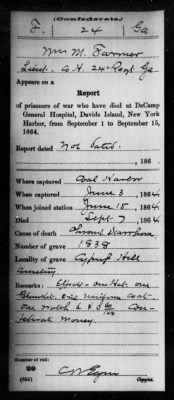 (Confederate)
F. 24 Ga
Wm M. Farmer
Lieut. Co H. 24 Regt Ga
Appears on a
Report
of prisoners of war who have died at DeCamp
General Hospital, Davids Island, New York
Harbor, from September 1 to September 15,
1864.
Report dated Not dated.
, 186 .
Where captured Coal Harbor
When captured June 3, 1864
When joined station June 15, 1864
Died Sept 7, 1864
Cause of death Chronic Diarrhoea
Number of grave 1938
Locality of grave Cypress Hill
Cemetery
Remarks: Effects - one Hat. one
Blanket. one Uniform Coat.
one Watch &
Con-
federate Money.
Number of roll:
20
(654) Copyist.